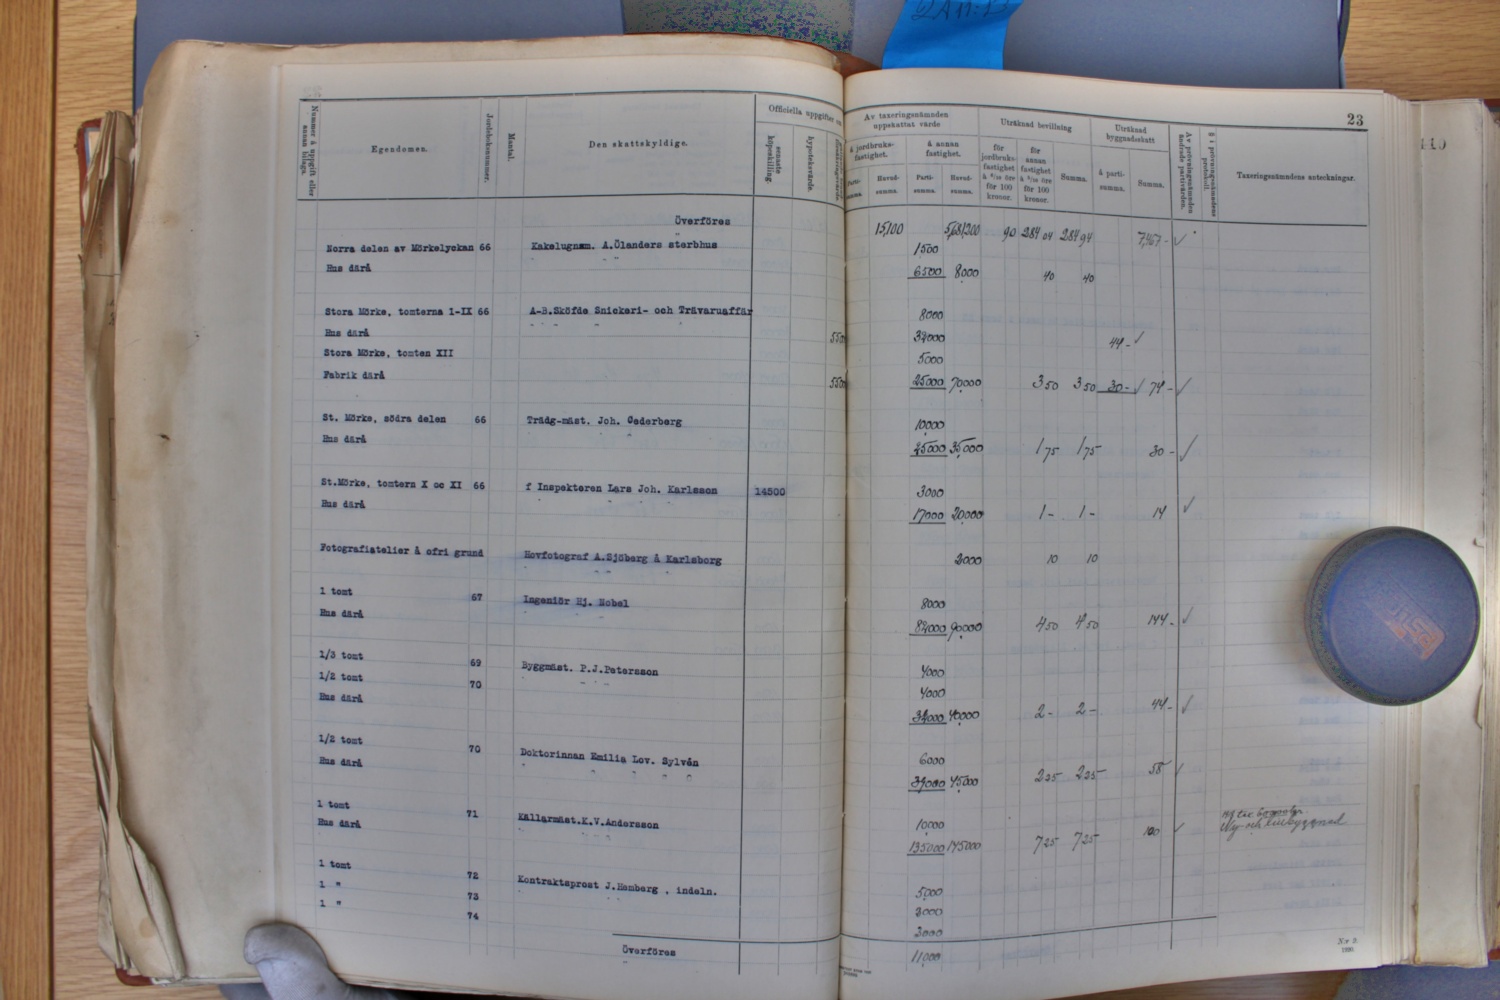 2 A II:13
23
Nummer å uppgift eller annan bilaga.
Egendomen.
Jordeboksnummer.
Mantal.
Den skattskyldige.
Officiella uppgifter
senaste köpeskilling.
hypoteksvärde.
Av taxeringsnämnden uppskattat värde
å jordbruksfastighet.
å annan fastighet.
Parti-summa.
Huvud-summa.
Parti-summa.
Huvud-summa.
Uträknad bevillning
för jordbruksfastighet
för 100 kronor.
för annan fastighet
för 100 kronor.
Summa.
Uträknad byggnadsskatt
å parti-summa.
Summa.
Av prövningsnämnden ändrade partivärden.
§ i prövningsnämndens protokoll.
Taxeringsnämndens anteckningar.
Överföres 15,100 90 284 04 284 94 7,467 -
Norra delen av Mörkelyckan 66 Kakelugnsm. A.Ölanders sterbhus 1500
Hus därå " " 6500 8000 40 40
Stora Mörke, tomterna 1-IX 66 A-B.Sköfde Snickeri- och Trävaruaffär 8000
Hus därå 32000 44 -
Stora Mörke, tomten XII 5000
Fabrik därå 25000 70000 3 50 3 50 30 - 74 -
St. Mörke, södra delen 66 Trädg-mäst. Joh. Cederberg 10000
Hus därå 25000 35000 1 75 1 75 30 -
St.Mörke, tomtern X oc XI 66 f Inspektoren Lars Joh. Karlsson 14500 3000
Hus därå 17000 20000 1 - 1 - 14
Fotografiatelier å ofri grund Hovfotograf A.Sjöberg å Karlsborg 2000 10 10
1 tomt 67 Ingeniör Hj. Nobel 8000
Hus därå 82000 90000 4 50 4 50 144 -
1/3 tomt 69 Byggmäst. P.J.Petersson 4000
1/2 tomt 70 4000
Hus därå 32000 40000 2 - 2 - 44 -
1/2 tomt 70 Doktorinnan Emilia Lov. Sylvén 6000
Hus därå 39000 45000 2 25 2 25 58
1 tomt 71 Källarmäst.K.V.Andersson 10000
Hus därå 135000 145000 7 25 7 25 100 Ny- och tillbyggnad
1 tomt 72 Kontraktsprost J.Hamberg , indeln. 5000
1 " 73 3000
1 " 74 3000
Överföres 11,000
N:r 2.
1920.